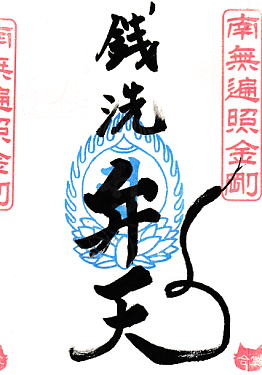 南無遍照金剛
銭洗
弁天
南無遍照金剛